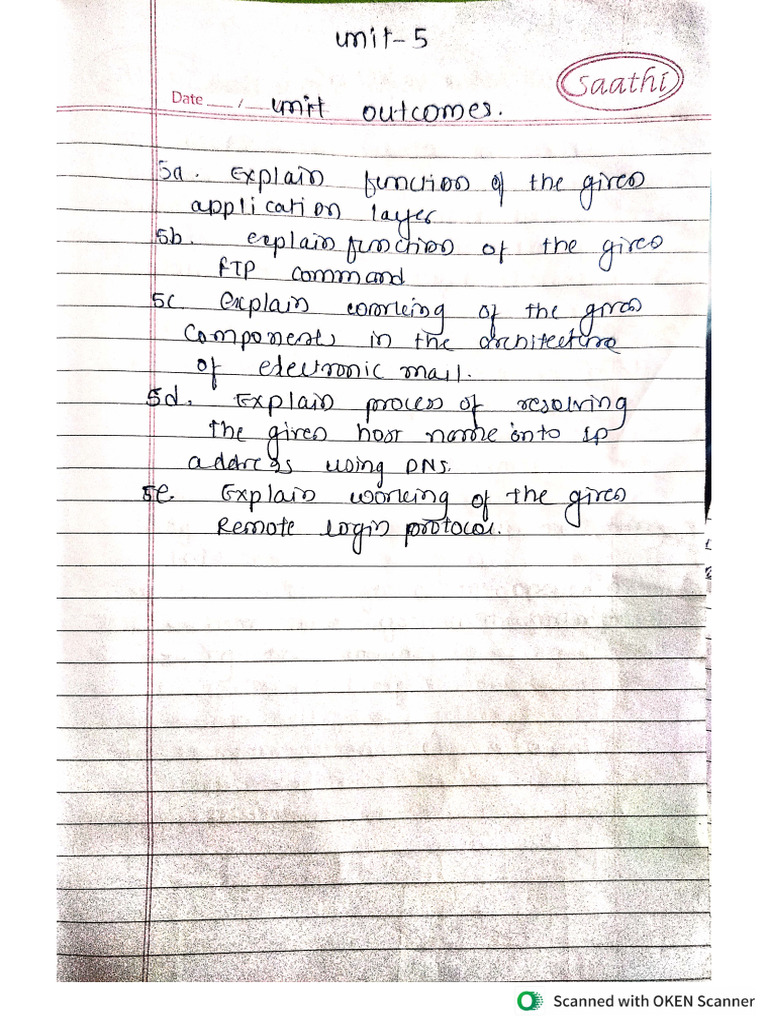 Unit-5
saathi
Date ___/___ Unit outcomes.
5a. Explain function of the given
application layer
5b. explain function of the given
FTP command
5c Explain working of the given
Components in the architecture
of electronic mail.
5d. Explain process of resolving
the given host name into IP
address using DNS.
5e. Explain working of the given
Remote login protocol.
Scanned with OKEN Scanner